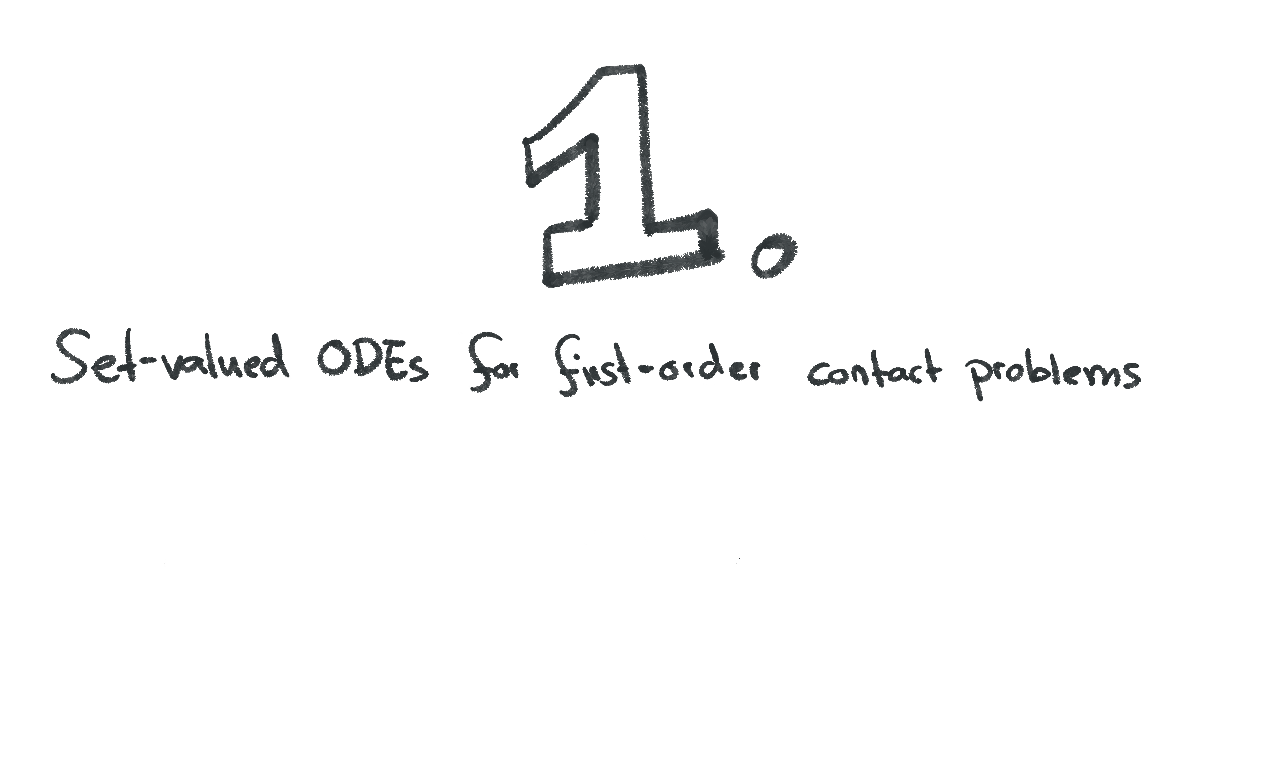 1.
Set-valued ODEs for first-order contact problems